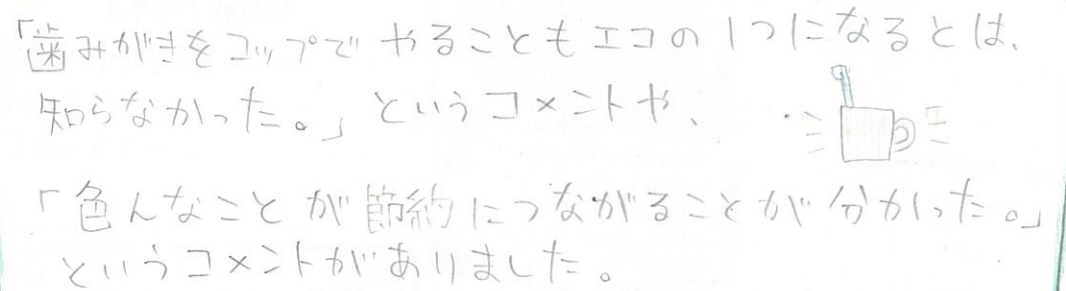 「歯みがきをコップでやることもエコの1つになるとは、
知らなかった。」というコメントや、
「色んなことが節約につながることが分かった。」
というコメントがありました。